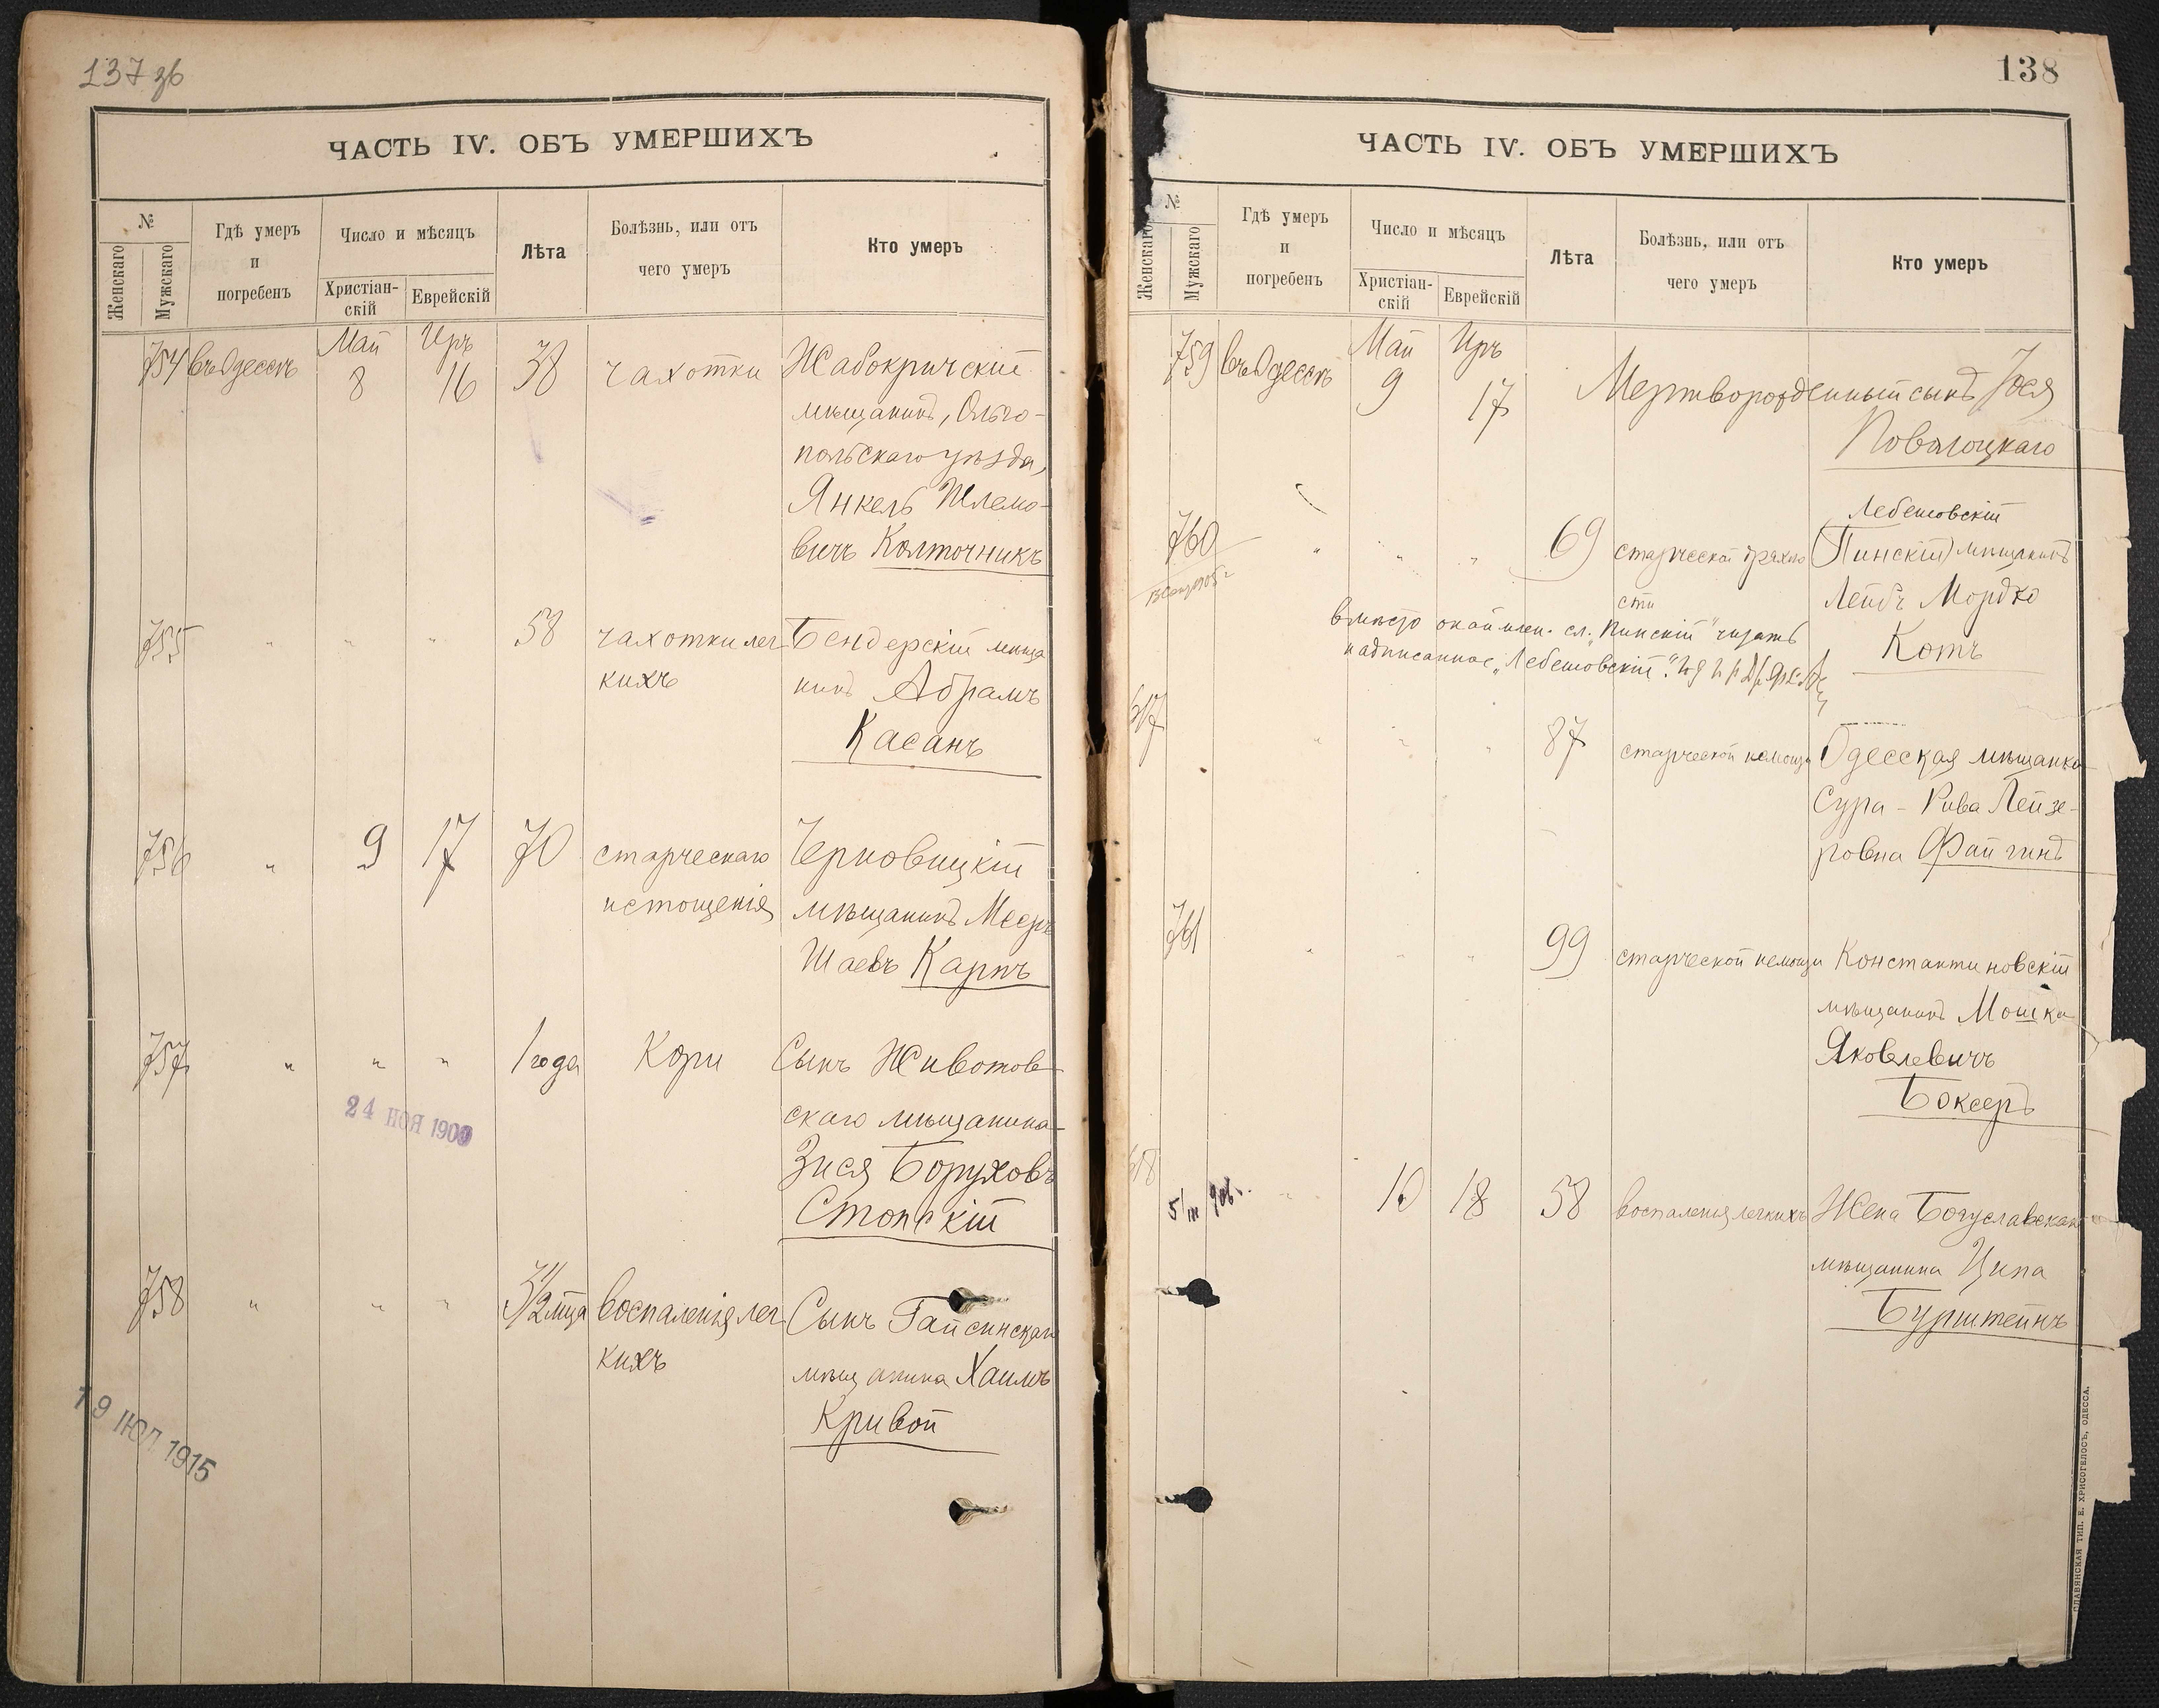 137 зв
ЧАСТЬ IV. ОБЪ УМЕРШИХЪ
№
Женскаго
Мужскаго
Гдѣ умеръ
и
погребенъ
Число и мѣсяцъ
Христіан-
скій
Еврейскій
Лѣта
Болѣзнь, или отъ
чего умеръ
Кто умеръ
Май Иръ
754 въ Одессѣ 8 16 38 чахотки Жабокричскій
мѣщанинъ, Ольго-
польскаго уѣзда,
Янкель Шлемо-
вичъ Колточникъ
755 " " " 58 чахотки лег- Бендерскій мѣща
кихъ нинъ Абрамъ
Касанъ
756 " 9 17 70 старческаго Черновицкій
истощенія мѣщанинъ Мееръ
Шаевъ Карпъ
757 " " " 1 года Кори Сынъ Животов-
24 НОЯ 1900
скаго мѣщанина
Зися Боруховъ
Стопскій
758 " " " 3 1/2 мѣца воспаленія лег- Сынъ Гайсинскаго
кихъ мѣщанина Хаимъ
Кривой
19 ІЮЛ 1915
138
ЧАСТЬ IV. ОБЪ УМЕРШИХЪ
№
Женскаго
Мужскаго
Гдѣ умеръ
и
погребенъ
Число и мѣсяцъ
Христіан-
скій
Еврейскій
Лѣта
Болѣзнь, или отъ
чего умеръ
Кто умеръ
Май Иръ
759 въ Одессѣ 9 17 Мертворожденный сынъ Іося
Поволоцкаго
Лебешовскій
760 " " " 69 старческой дряхло (Пинскій) мѣщанинъ
сти Лейбъ Мордко
Котъ
вмѣсто окаймлен. сл. "Пинскій" читать
надписанное "Лебешовскій".
617 " " " 87 старческой немощи Одесская мѣщанка
Сура-Рива Лейзе-
ровна Файгинъ
761 " " " 99 старческой немощи Константиновскій
мѣщанинъ Мошка
Яковлевичъ
Боксеръ
618 " 10 18 58 воспаленія легкихъ Жена Богуславскаго
5/III 906 г.
мѣщанина Ципа
Бурштейнъ
СЛАВЯНСКАЯ ТИП. Е. ХРИСОГЕЛОСЪ, ОДЕССА.